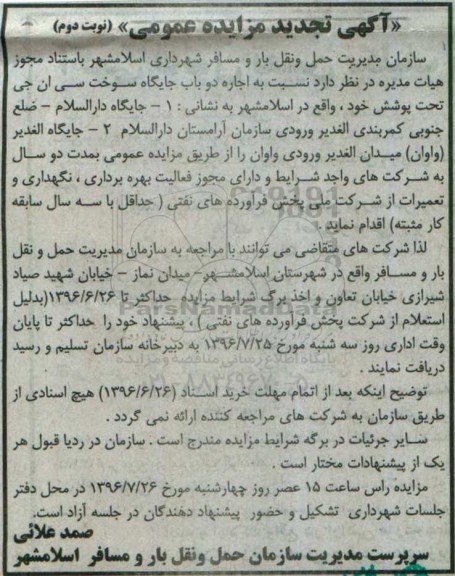 «آگهی تجدید مزایده عمومی» (نوبت دوم)
سازمان مدیریت حمل ونقل بار و مسافر شهرداری اسلامشهر باستناد مجوز
هیات مدیره در نظر دارد نسبت به اجاره دو باب جایگاه سوخت سی ان جی
تحت پوشش خود ، واقع در اسلامشهر به نشانی : ۱ – جایگاه دارالسلام – ضلع
جنوبی کمربندی الغدیر ورودی سازمان آرامستان دارالسلام ۲ – جایگاه الغدیر
(واوان) میدان الغدیر ورودی واوان را از طریق مزایده عمومی بمدت دو سال
به شرکت های واجد شرایط و دارای مجوز فعالیت بهره برداری ، نگهداری و
تعمیرات از شرکت ملی پخش فراورده های نفتی ( حداقل با سه سال سابقه
کار مثبته) اقدام نماید .
لذا شرکت های متقاضی می توانند با مراجعه به سازمان مدیریت حمل و نقل
بار و مسافر واقع در شهرستان اسلامشهر– میدان نماز – خیابان شهید صیاد
شیرازی خیابان تعاون و اخذ برگ شرایط مزایده حداکثر تا ۱۳۹۶/۶/۲۶(بدلیل
استعلام از شرکت پخش فرآورده های نفتی ) ، پیشنهاد خود را حداکثر تا پایان
وقت اداری روز سه شنبه مورخ ۱۳۹۶/۷/۲۵ به دبیرخانه سازمان تسلیم و رسید
دریافت نمایند .
توضیح اینکه بعد از اتمام مهلت خرید اسناد (۱۳۹۶/۶/۲۶) هیچ اسنادی از
طریق سازمان به شرکت های مراجعه کننده ارائه نمی گردد .
سایر جزئیات در برگه شرایط مزایده مندرج است . سازمان در ردیا قبول هر
یک از پیشنهادات مختار است .
مزایده راس ساعت ۱۵ عصر روز چهارشنبه مورخ ۱۳۹۶/۷/۲۶ در محل دفتر
جلسات شهرداری تشکیل و حضور پیشنهاد دهندگان در جلسه آزاد است.
صمد علائی
سرپرست مدیریت سازمان حمل ونقل بار و مسافر اسلامشهر
ParsNamadData